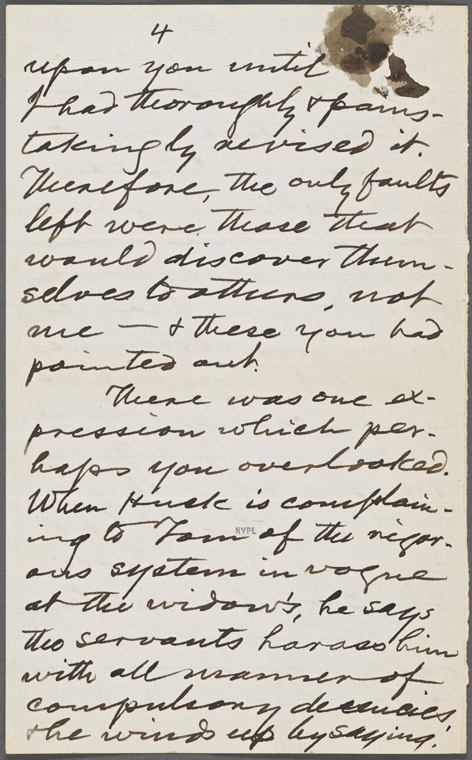 4
upon you until
I had thoroughly & pains-
takingly revised it.
Therefore, the only faults
left were those that
would discover them-
selves to others, not
me — & these you had
pointed out.
There was one ex-
pression which per-
haps you overlooked.
When Huck is complain-
ing to Tom of the rigor-
ous system in vogue
at the widow's, he says
the servants harass him
with all manner of
compulsory decencies,
& he winds up by saying,
NYPL